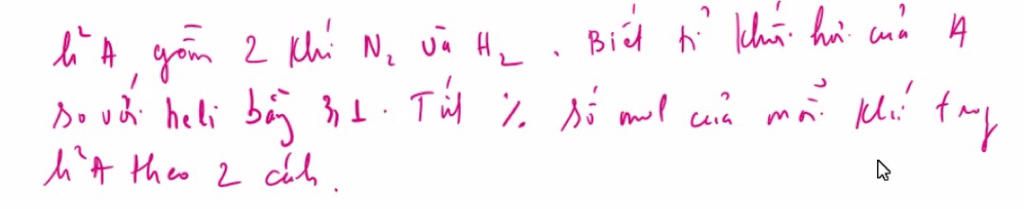 h² A, gồm 2 khí N₂ và H₂. Biết tỉ khối hơi của A
so với heli bằng 3,1. Tính % số mol của mỗi khí trong
h² A theo 2 cách.